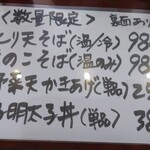 ＜数量限定＞ 裏面あり
り天そば(温/冷) 98
のこそば(温のみ) 98
野菜天かきあげ(単品) 2
明太子丼(単品) 38